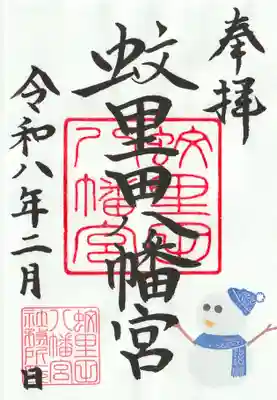 奉拝
蚊里田八幡宮
令和八年二月 日
蚊里田
八幡宮
蚊里田
八幡宮
社務所印